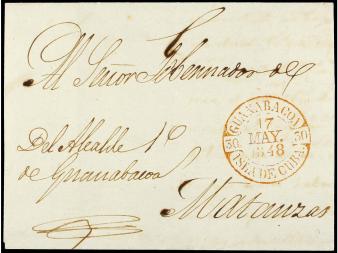 Al Señor Gobernador de
Del Alcalde 1º
de Guanabacoa
GUANABACOA
17
MAY.
1848
30
30
ISLA DE CUBA
Matanzas